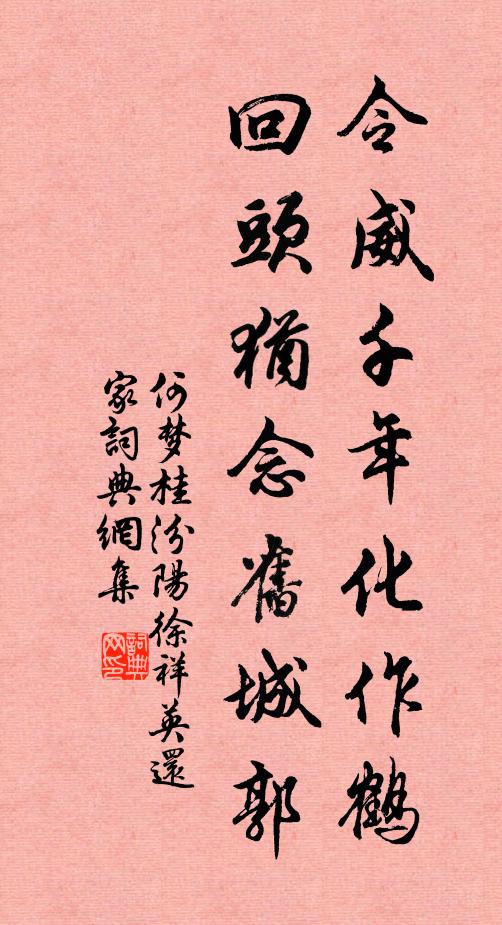 令威千年化作鶴
回頭猶念舊城郭
何梦桂汾陽徐祥英還
家詞典網集
詞典網印